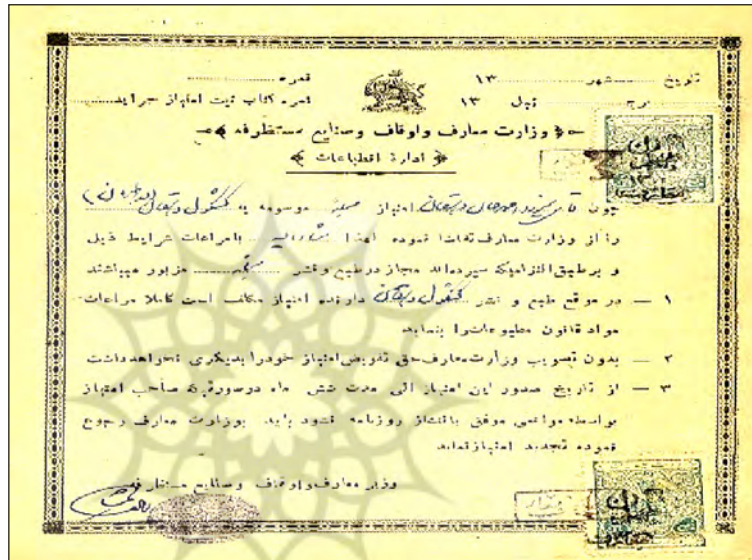 تاریخ شهر ۱۳ نمره
برج ئیل ۱۳ نمره کتاب ثبت امتیاز جراید
وزارت معارف و اوقاف و صنایع مستظرفه
ادارهٔ انطباعات
چون آقای امتیاز موسومه به کشکول
را از وزارت معارف تقاضا نموده لهذا بامراعات شرایط ذیل
و برطبق التزامیکه سپرده‌اند مجاز درطبع و نشر مزبور میباشند
۱ — در موقع طبع و نشر کشکول دارنده امتیاز مکلف است کاملا مراعات
مواد قانون مطبوعات را بنماید
۲ — بدون تصویب وزارت معارف حق تفویض امتیاز خودرا بدیگری نخواهد داشت
۳ — از تاریخ صدور این امتیاز الی مدت شش ماه درصورتیکه صاحب امتیاز
بواسطه موانعی موفق بانتشار روزنامه نشود باید بوزارت معارف رجوع
نموده تجدید امتیاز نماید
وزیر معارف و اوقاف و صنایع مستظرفه